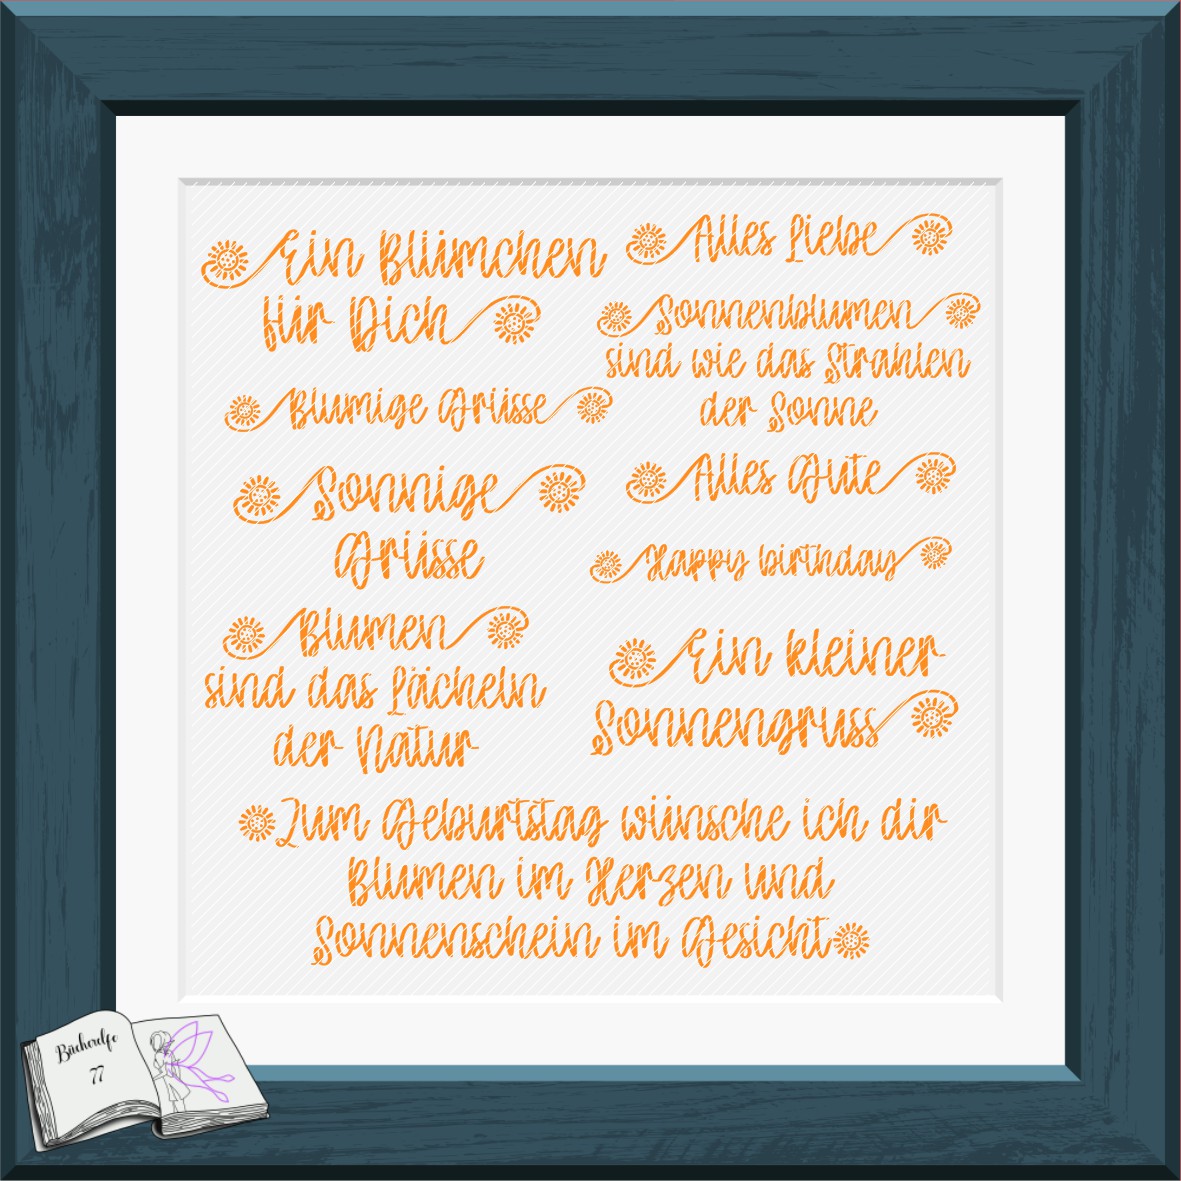 Ein Blümchen
für Dich
Blumige Grüsse
Sonnige
Grüsse
Blumen
sind das Lächeln
der Natur
Alles Liebe
Sonnenblumen
sind wie das Strahlen
der Sonne
Alles Gute
Happy birthday
Ein kleiner
Sonnengruss
Zum Geburtstag wünsche ich dir
Blumen im Herzen und
Sonnenschein im Gesicht
Bücherelfe
77